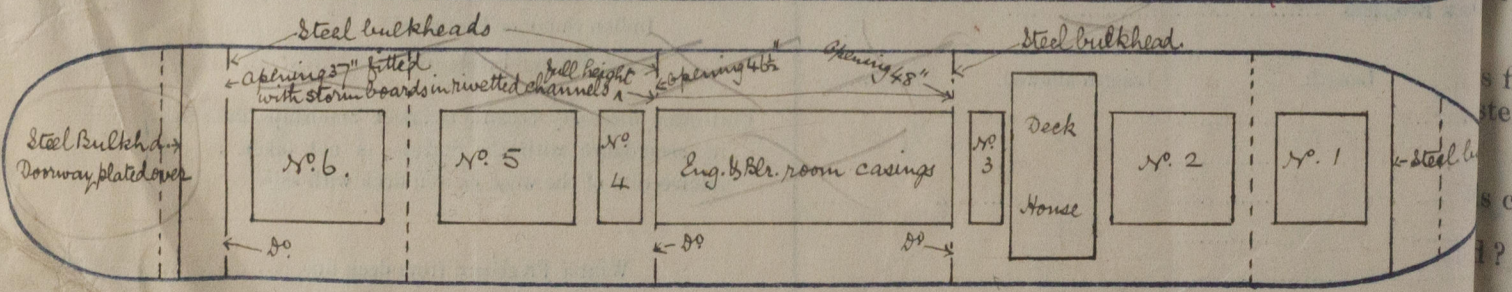 Steel bulkheads
Steel bulkhead.
opening 37" fitted
full height
with storm boards in rivetted channels
opening 46½"
opening 48"
Steel Bulkhd.
Doorway plated over
No. 6.
No. 5
No
4
Eng. & Blr. room casings
No.
3
Deck
House
No. 2
No. 1
Steel
Do
Do
Do